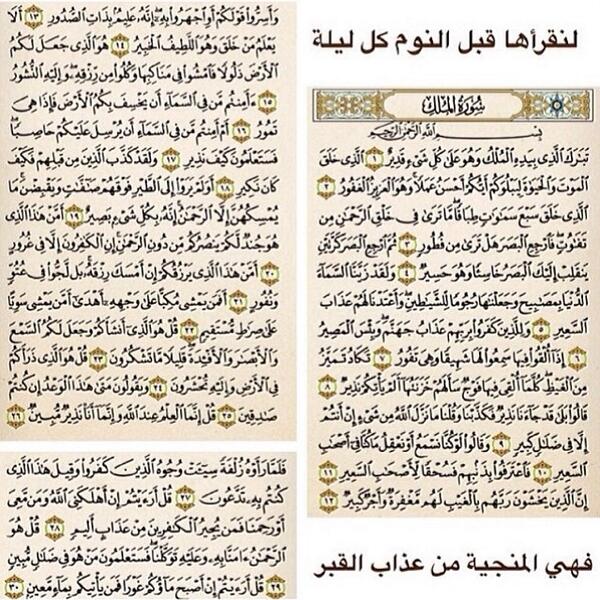 لنقرأها قبل النوم كل ليلة
سُورَةُ المُلْكِ
بِسْمِ اللَّهِ الرَّحْمَٰنِ الرَّحِيمِ
تَبَٰرَكَ ٱلَّذِى بِيَدِهِ ٱلْمُلْكُ وَهُوَ عَلَىٰ كُلِّ شَىْءٍ قَدِيرٌ ١ ٱلَّذِى خَلَقَ
ٱلْمَوْتَ وَٱلْحَيَوٰةَ لِيَبْلُوَكُمْ أَيُّكُمْ أَحْسَنُ عَمَلًا وَهُوَ ٱلْعَزِيزُ ٱلْغَفُورُ ٢
ٱلَّذِى خَلَقَ سَبْعَ سَمَٰوَٰتٍ طِبَاقًا مَّا تَرَىٰ فِى خَلْقِ ٱلرَّحْمَٰنِ مِن
تَفَٰوُتٍ فَٱرْجِعِ ٱلْبَصَرَ هَلْ تَرَىٰ مِن فُطُورٍ ٣ ثُمَّ ٱرْجِعِ ٱلْبَصَرَ كَرَّتَيْنِ
يَنقَلِبْ إِلَيْكَ ٱلْبَصَرُ خَاسِئًا وَهُوَ حَسِيرٌ ٤ وَلَقَدْ زَيَّنَّا ٱلسَّمَآءَ
ٱلدُّنْيَا بِمَصَٰبِيحَ وَجَعَلْنَٰهَا رُجُومًا لِّلشَّيَٰطِينِ وَأَعْتَدْنَا لَهُمْ عَذَابَ
ٱلسَّعِيرِ ٥ وَلِلَّذِينَ كَفَرُوا۟ بِرَبِّهِمْ عَذَابُ جَهَنَّمَ وَبِئْسَ ٱلْمَصِيرُ
٦ إِذَآ أُلْقُوا۟ فِيهَا سَمِعُوا۟ لَهَا شَهِيقًا وَهِىَ تَفُورُ ٧ تَكَادُ تَمَيَّزُ
مِنَ ٱلْغَيْظِ كُلَّمَآ أُلْقِىَ فِيهَا فَوْجٌ سَأَلَهُمْ خَزَنَتُهَآ أَلَمْ يَأْتِكُمْ نَذِيرٌ ٨
قَالُوا۟ بَلَىٰ قَدْ جَآءَنَا نَذِيرٌ فَكَذَّبْنَا وَقُلْنَا مَا نَزَّلَ ٱللَّهُ مِن شَىْءٍ إِنْ أَنتُمْ
إِلَّا فِى ضَلَٰلٍ كَبِيرٍ ٩ وَقَالُوا۟ لَوْ كُنَّا نَسْمَعُ أَوْ نَعْقِلُ مَا كُنَّا فِىٓ أَصْحَٰبِ
ٱلسَّعِيرِ ١٠ فَٱعْتَرَفُوا۟ بِذَنۢبِهِمْ فَسُحْقًا لِّأَصْحَٰبِ ٱلسَّعِيرِ ١١
إِنَّ ٱلَّذِينَ يَخْشَوْنَ رَبَّهُم بِٱلْغَيْبِ لَهُم مَّغْفِرَةٌ وَأَجْرٌ كَبِيرٌ ١٢
وَأَسِرُّوا۟ قَوْلَكُمْ أَوِ ٱجْهَرُوا۟ بِهِۦٓ إِنَّهُۥ عَلِيمٌۢ بِذَاتِ ٱلصُّدُورِ ١٣ أَلَا
يَعْلَمُ مَنْ خَلَقَ وَهُوَ ٱللَّطِيفُ ٱلْخَبِيرُ ١٤ هُوَ ٱلَّذِى جَعَلَ لَكُمُ
ٱلْأَرْضَ ذَلُولًا فَٱمْشُوا۟ فِى مَنَاكِبِهَا وَكُلُوا۟ مِن رِّزْقِهِۦ وَإِلَيْهِ ٱلنُّشُورُ
١٥ ءَأَمِنتُم مَّن فِى ٱلسَّمَآءِ أَن يَخْسِفَ بِكُمُ ٱلْأَرْضَ فَإِذَا هِىَ
تَمُورُ ١٦ أَمْ أَمِنتُم مَّن فِى ٱلسَّمَآءِ أَن يُرْسِلَ عَلَيْكُمْ حَاصِبًا
فَسَتَعْلَمُونَ كَيْفَ نَذِيرِ ١٧ وَلَقَدْ كَذَّبَ ٱلَّذِينَ مِن قَبْلِهِمْ فَكَيْفَ
كَانَ نَكِيرِ ١٨ أَوَلَمْ يَرَوْا۟ إِلَى ٱلطَّيْرِ فَوْقَهُمْ صَٰٓفَّٰتٍ وَيَقْبِضْنَ مَا
يُمْسِكُهُنَّ إِلَّا ٱلرَّحْمَٰنُ إِنَّهُۥ بِكُلِّ شَىْءٍۭ بَصِيرٌ ١٩ أَمَّنْ هَٰذَا ٱلَّذِى
هُوَ جُندٌ لَّكُمْ يَنصُرُكُم مِّن دُونِ ٱلرَّحْمَٰنِ إِنِ ٱلْكَٰفِرُونَ إِلَّا فِى غُرُورٍ
٢٠ أَمَّنْ هَٰذَا ٱلَّذِى يَرْزُقُكُمْ إِنْ أَمْسَكَ رِزْقَهُۥ بَل لَّجُّوا۟ فِى عُتُوٍّ
وَنُفُورٍ ٢١ أَفَمَن يَمْشِى مُكِبًّا عَلَىٰ وَجْهِهِۦٓ أَهْدَىٰٓ أَمَّن يَمْشِى سَوِيًّا
عَلَىٰ صِرَٰطٍ مُّسْتَقِيمٍ ٢٢ قُلْ هُوَ ٱلَّذِىٓ أَنشَأَكُمْ وَجَعَلَ لَكُمُ ٱلسَّمْعَ
وَٱلْأَبْصَٰرَ وَٱلْأَفْـِٔدَةَ قَلِيلًا مَّا تَشْكُرُونَ ٢٣ قُلْ هُوَ ٱلَّذِى ذَرَأَكُمْ
فِى ٱلْأَرْضِ وَإِلَيْهِ تُحْشَرُونَ ٢٤ وَيَقُولُونَ مَتَىٰ هَٰذَا ٱلْوَعْدُ إِن كُنتُمْ
صَٰدِقِينَ ٢٥ قُلْ إِنَّمَا ٱلْعِلْمُ عِندَ ٱللَّهِ وَإِنَّمَآ أَنَا۠ نَذِيرٌ مُّبِينٌ ٢٦
فَلَمَّا رَأَوْهُ زُلْفَةً سِيٓـَٔتْ وُجُوهُ ٱلَّذِينَ كَفَرُوا۟ وَقِيلَ هَٰذَا ٱلَّذِى
كُنتُم بِهِۦ تَدَّعُونَ ٢٧ قُلْ أَرَءَيْتُمْ إِنْ أَهْلَكَنِىَ ٱللَّهُ وَمَن مَّعِىَ
أَوْ رَحِمَنَا فَمَن يُجِيرُ ٱلْكَٰفِرِينَ مِنْ عَذَابٍ أَلِيمٍ ٢٨ قُلْ هُوَ
ٱلرَّحْمَٰنُ ءَامَنَّا بِهِۦ وَعَلَيْهِ تَوَكَّلْنَا فَسَتَعْلَمُونَ مَنْ هُوَ فِى ضَلَٰلٍ مُّبِينٍ
٢٩ قُلْ أَرَءَيْتُمْ إِنْ أَصْبَحَ مَآؤُكُمْ غَوْرًا فَمَن يَأْتِيكُم بِمَآءٍ مَّعِينٍۭ ٣٠
فهي المنجية من عذاب القبر